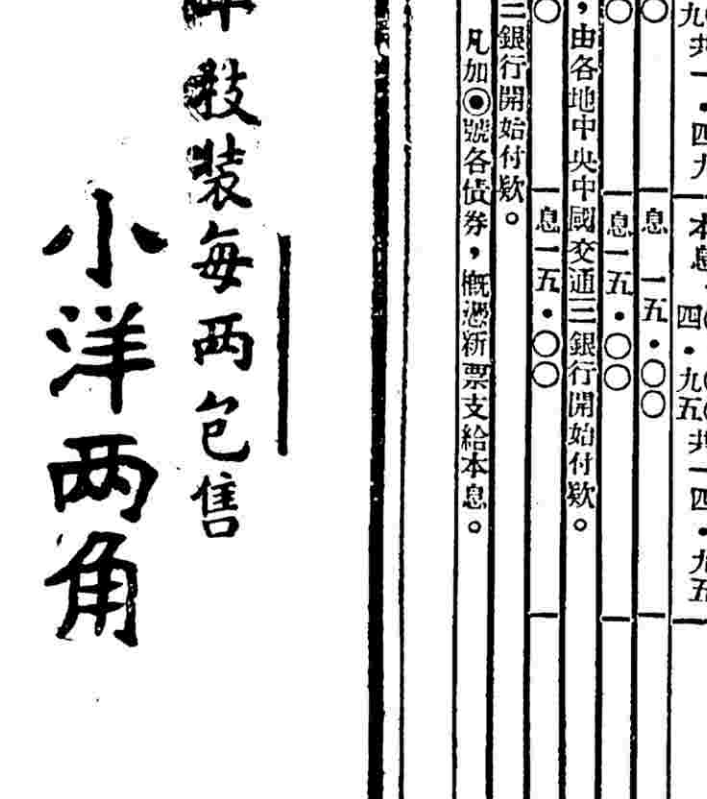 九〇共一・四九｜本息・四〇・九〇五五共一四・九五
〇｜息一五・〇〇｜
〇｜息一五・〇〇｜
，由各地中央中國交通三銀行開始付欵。
〇｜息一五・〇〇｜
三銀行開始付欵。
凡加◉號各債券，概憑新票支給本息。
枝裝每两包售
小洋两角